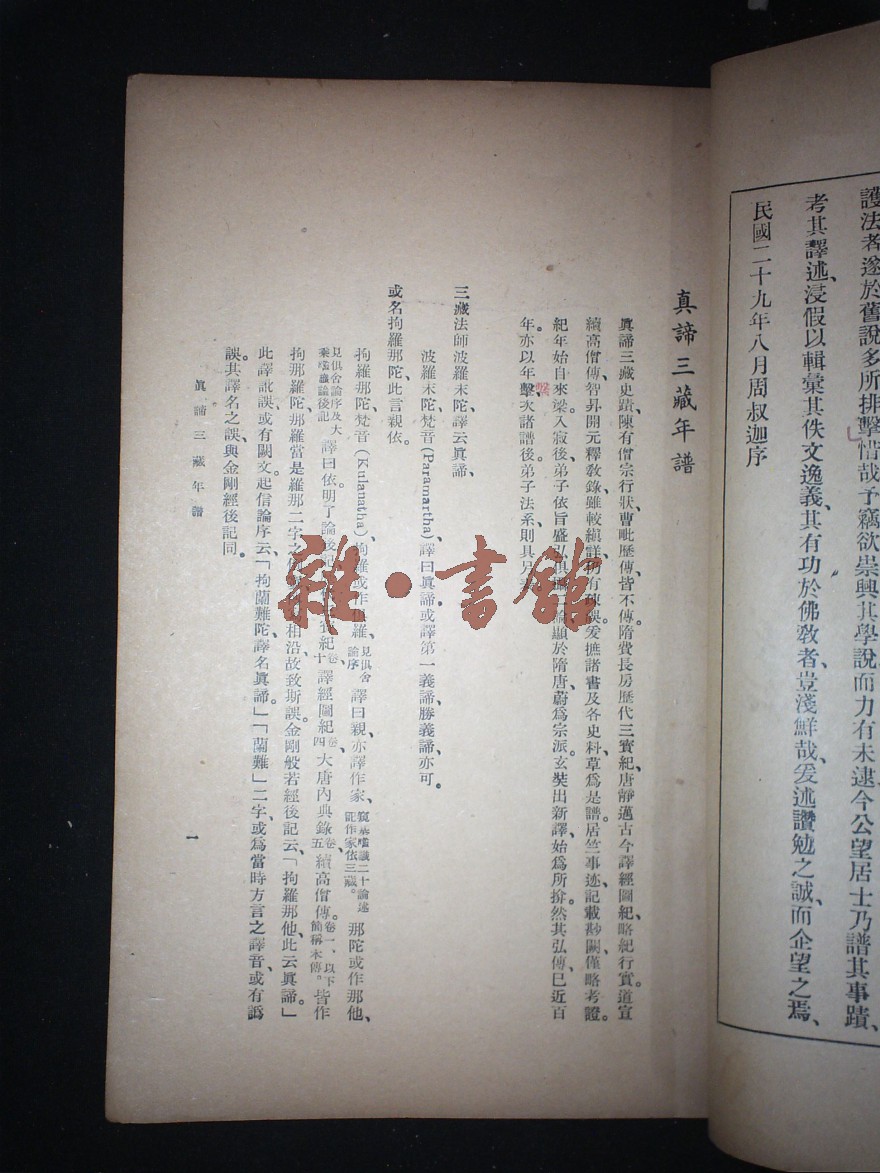 護法者遂於舊說多所排擊惜哉予竊欲崇興其學說而力有未逮今公望居士乃譜其事蹟、
考其譯述、浸假以輯彙其佚文逸義、其有功於佛敎者、豈淺鮮哉、爰述讚勉之誠、而企望之焉、
民國二十九年八月周叔迦序
真諦三藏年譜
眞諦三藏史蹟、陳有僧宗行狀、曹毗歷傳、皆不傳隋費長房歷代三寶紀、唐靜邁古今譯經圖紀、略紀行實。道宣
續高僧傳、智昇開元釋敎錄、雖較縝詳、誤。爰摭諸書及各史料、草爲是譜。居竺事迹、記載尠闕、僅略考證。
紀年始自來梁。入寂後、弟子依旨盛弘、顯於隋唐、蔚爲宗派。玄奘出新譯、始爲所揜、然其弘傳、已近百
年。亦以年擊次諸譜後、弟子法系、則具另
繫
三藏法師波羅末陀、譯云眞諦、
波羅末陀、梵音(Paramartha)、譯曰眞諦、或譯第一義諦、勝義諦、亦可。
或名拘羅那陀、此言親依。
拘羅那陀、梵音(Kulanatha)、拘羅或作俱羅、見俱舍論序譯曰親、亦譯作家、二十論述記作家依三藏。那陀或作那他、
見俱舍論序及大乘唯識論後記譯曰依、明了論後記、紀卷十、譯經圖紀卷四、大唐內典錄卷五、續高僧傳卷一、以下簡稱本傳。皆作
拘那羅陀、那羅當是羅那二字之相沿、故致斯誤。金剛般若經後記云、「拘羅那他、此云眞諦。」
此譯訛誤、或有闕文。起信論序云、「拘蘭難陀、譯名眞諦。」「蘭難」二字、或爲當時方言之譯音、或有譌
誤、其譯名之誤、與金剛經後記同。
眞諦三藏年譜
一
雜·書館